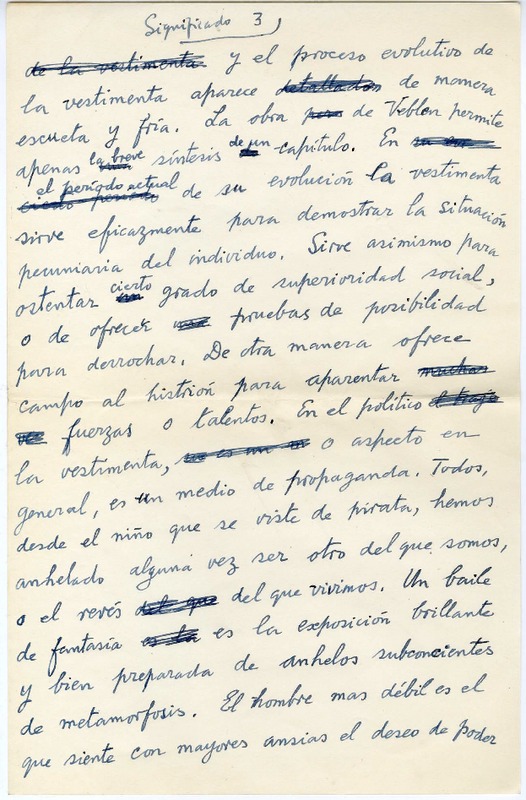 Significado 3
de la vestimenta y el proceso evolutivo de
la vestimenta aparece detallados de manera
escueta y fría. La obra de Veblen permite
apenas la breve síntesis de un capítulo. En
el período actual de su evolución la vestimenta
sirve eficazmente para demostrar la situación
pecuniaria del individuo. Sirve asimismo para
ostentar cierto grado de superioridad social,
o de ofrecer pruebas de posibilidad
para derrochar. De otra manera ofrece
campo al histrión para aparentar muchas
fuerzas o talentos. En el político el traje
la vestimenta, o aspecto en
general, es un medio de propaganda. Todos,
desde el niño que se viste de pirata, hemos
anhelado alguna vez ser otro del que somos,
o el revés del que del que vivimos. Un baile
de fantasía es la es la exposición brillante
y bien preparada de anhelos subconcientes
de metamorfosis. El hombre mas débil es el
que siente con mayores ansias el deseo de poder